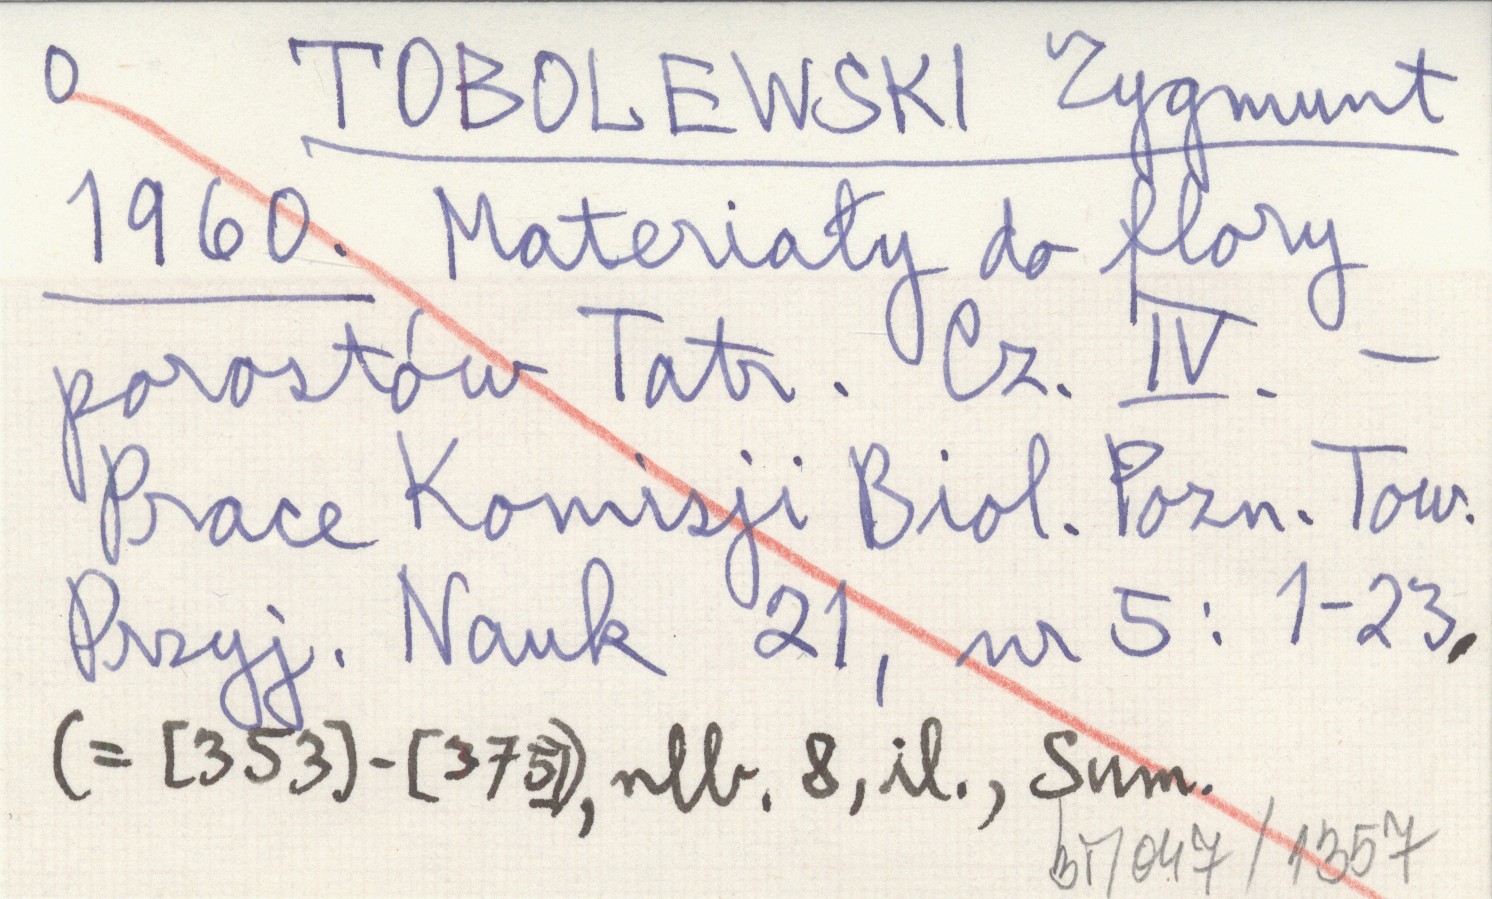 0 TOBOLEWSKI Zygmunt
1960. Materiały do flory
porostów Tatr. Cz. IV. —
Prace Komisji Biol. Pozn. Tow.
Przyj. Nauk 21, nr 5: 1-23.
(= [353]-[375]), nlb. 8, il., Sum.
/047/1357